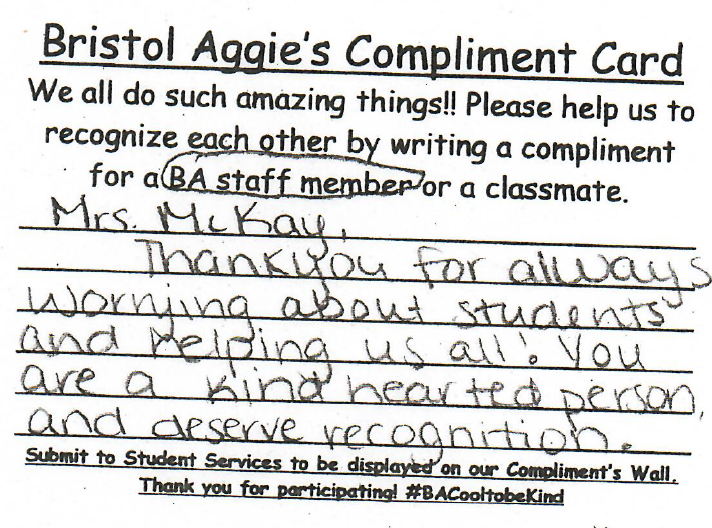 Bristol Aggie's Compliment Card
We all do such amazing things!! Please help us to
recognize each other by writing a compliment
for a BA staff member or a classmate.
Mrs. McKay,
Thankyou for always
worrying about students
and helping us all! You
are a kind hearted person,
and deserve recognition.
Submit to Student Services to be displayed on our Compliment's Wall.
Thank you for participating! #BACooltobeKind